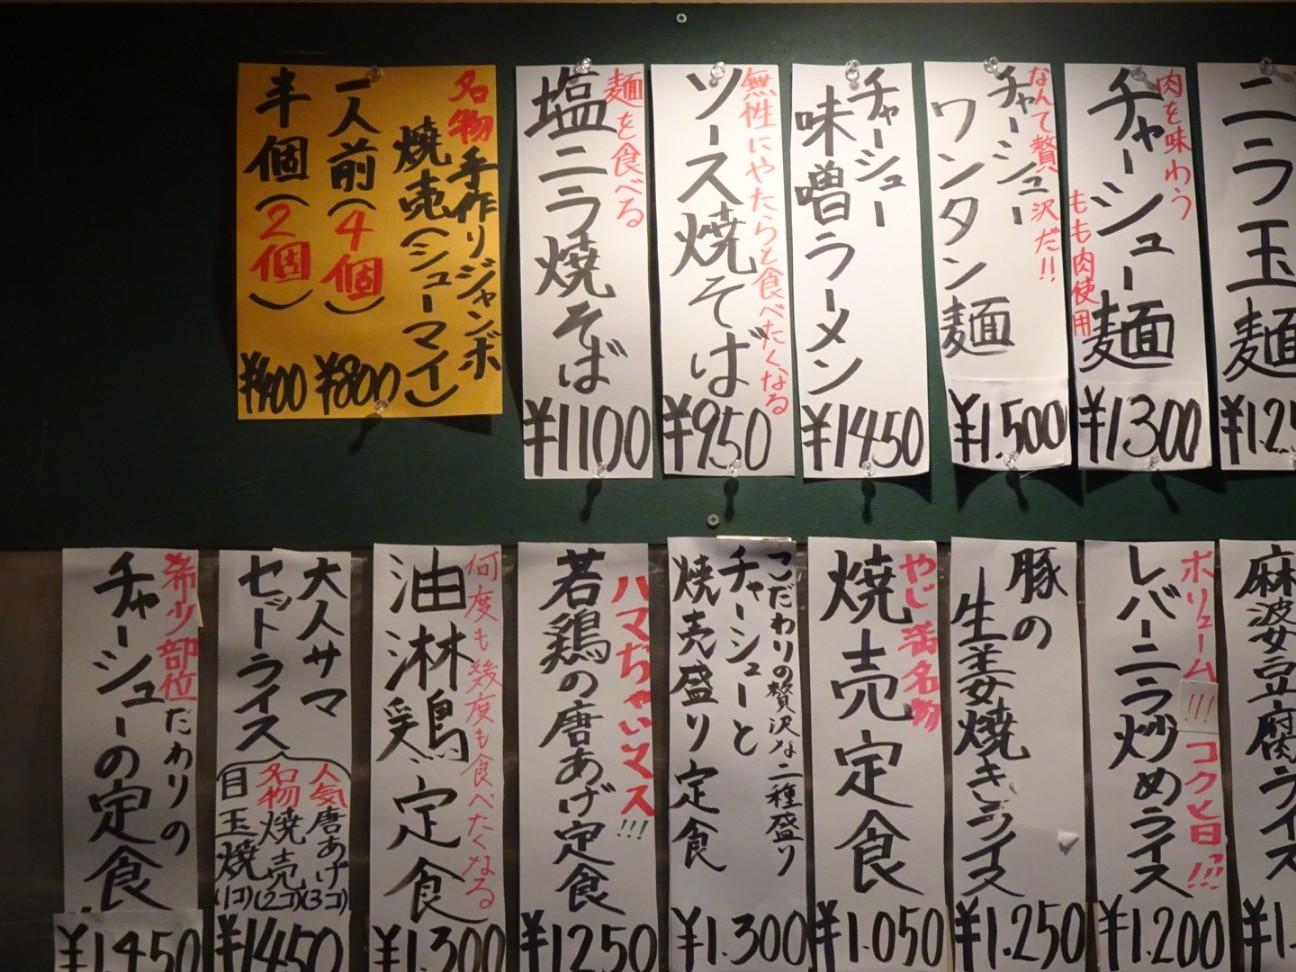 ニラ玉麺
¥1.2
肉を味わう
もも肉使用
チャーシュー麺
¥1300
なんて贅沢だ!!
チャーシュー
ワンタン麺
¥1.500
チャーシュー
味噌ラーメン
¥1450
無性にやたらと食べたくなる
ソース焼そば
¥950
麺を食べる
塩ニラ焼そば
¥1100
名物手作りジャンボ
焼売(シューマイ)
一人前(4個)
¥800
半個(2個)
¥400
麻波女豆腐ライス
¥1.
ボリューム!!!コク旨!!!
レバーニラ炒めライス
¥1.200
豚の
生姜焼きライス
¥1.250
やじ満名物
焼売定食
¥1.050
こだわりの贅沢な二種盛り
チャーシューと
焼売盛り定食
¥1.300
ハマぢゃいマス!!!
若鶏の唐あげ定食
¥1250
何度も幾度も食べたくなる
油淋鶏定食
¥1.300
大人サマ
セットライス
人気唐あげ(3コ)
名物焼売(2コ)
目玉焼(1コ)
¥1450
希少部位たわりの
チャーシューの定食
¥1.450